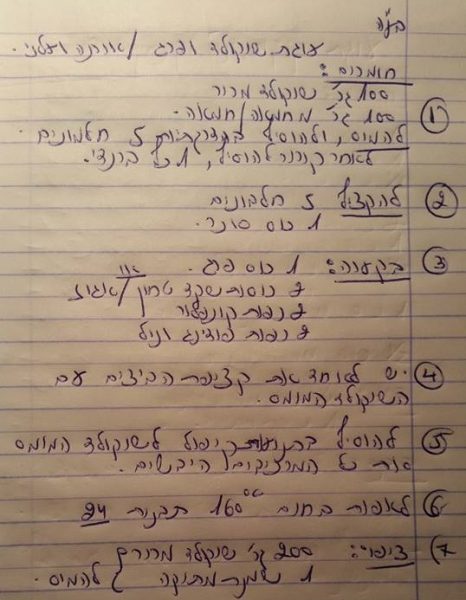 בע"ה
עוגת שוקולד ופרג /
חומרים:
100 גר' שוקולד מריר
① 100 גר' מחמאה/חמאה.
להמיס, ולהוסיף בהדרגתיות 5 חלמונים
לאחר קירור להוסיף, 1 כף ברנדי.
② להקציף 5 חלבונים
1 כוס סוכר.
③ בקערה: 1 כוס פרג.
2 כוסות שקד טחון /או אגוז
2 כפות קונפלור
2 כפות פודינג וניל
④ יש לאחד את קציפת הביצים עם
השוקולד המומס.
⑤ להוסיף בתנועת קיפול לשוקולד המומס
את כל המרכיבים היבשים.
⑥ לאפות בחום 160°c תבנית 24
⑦ ציפוי: 200 גר' שוקולד מריר
1 שמנת מתוקה } להמיס.